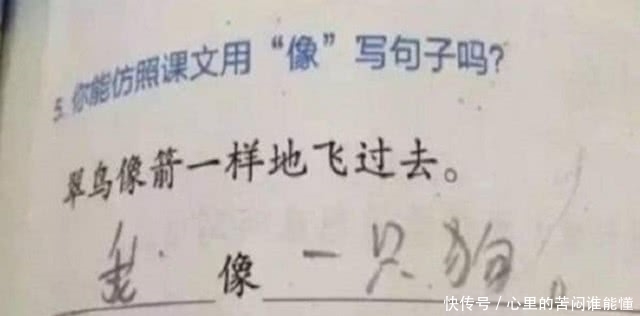 5. 你能仿照课文用“像”写句子吗?
翠鸟像箭一样地飞过去。
我像一只狗。
快传号/心里的苦闷谁能懂